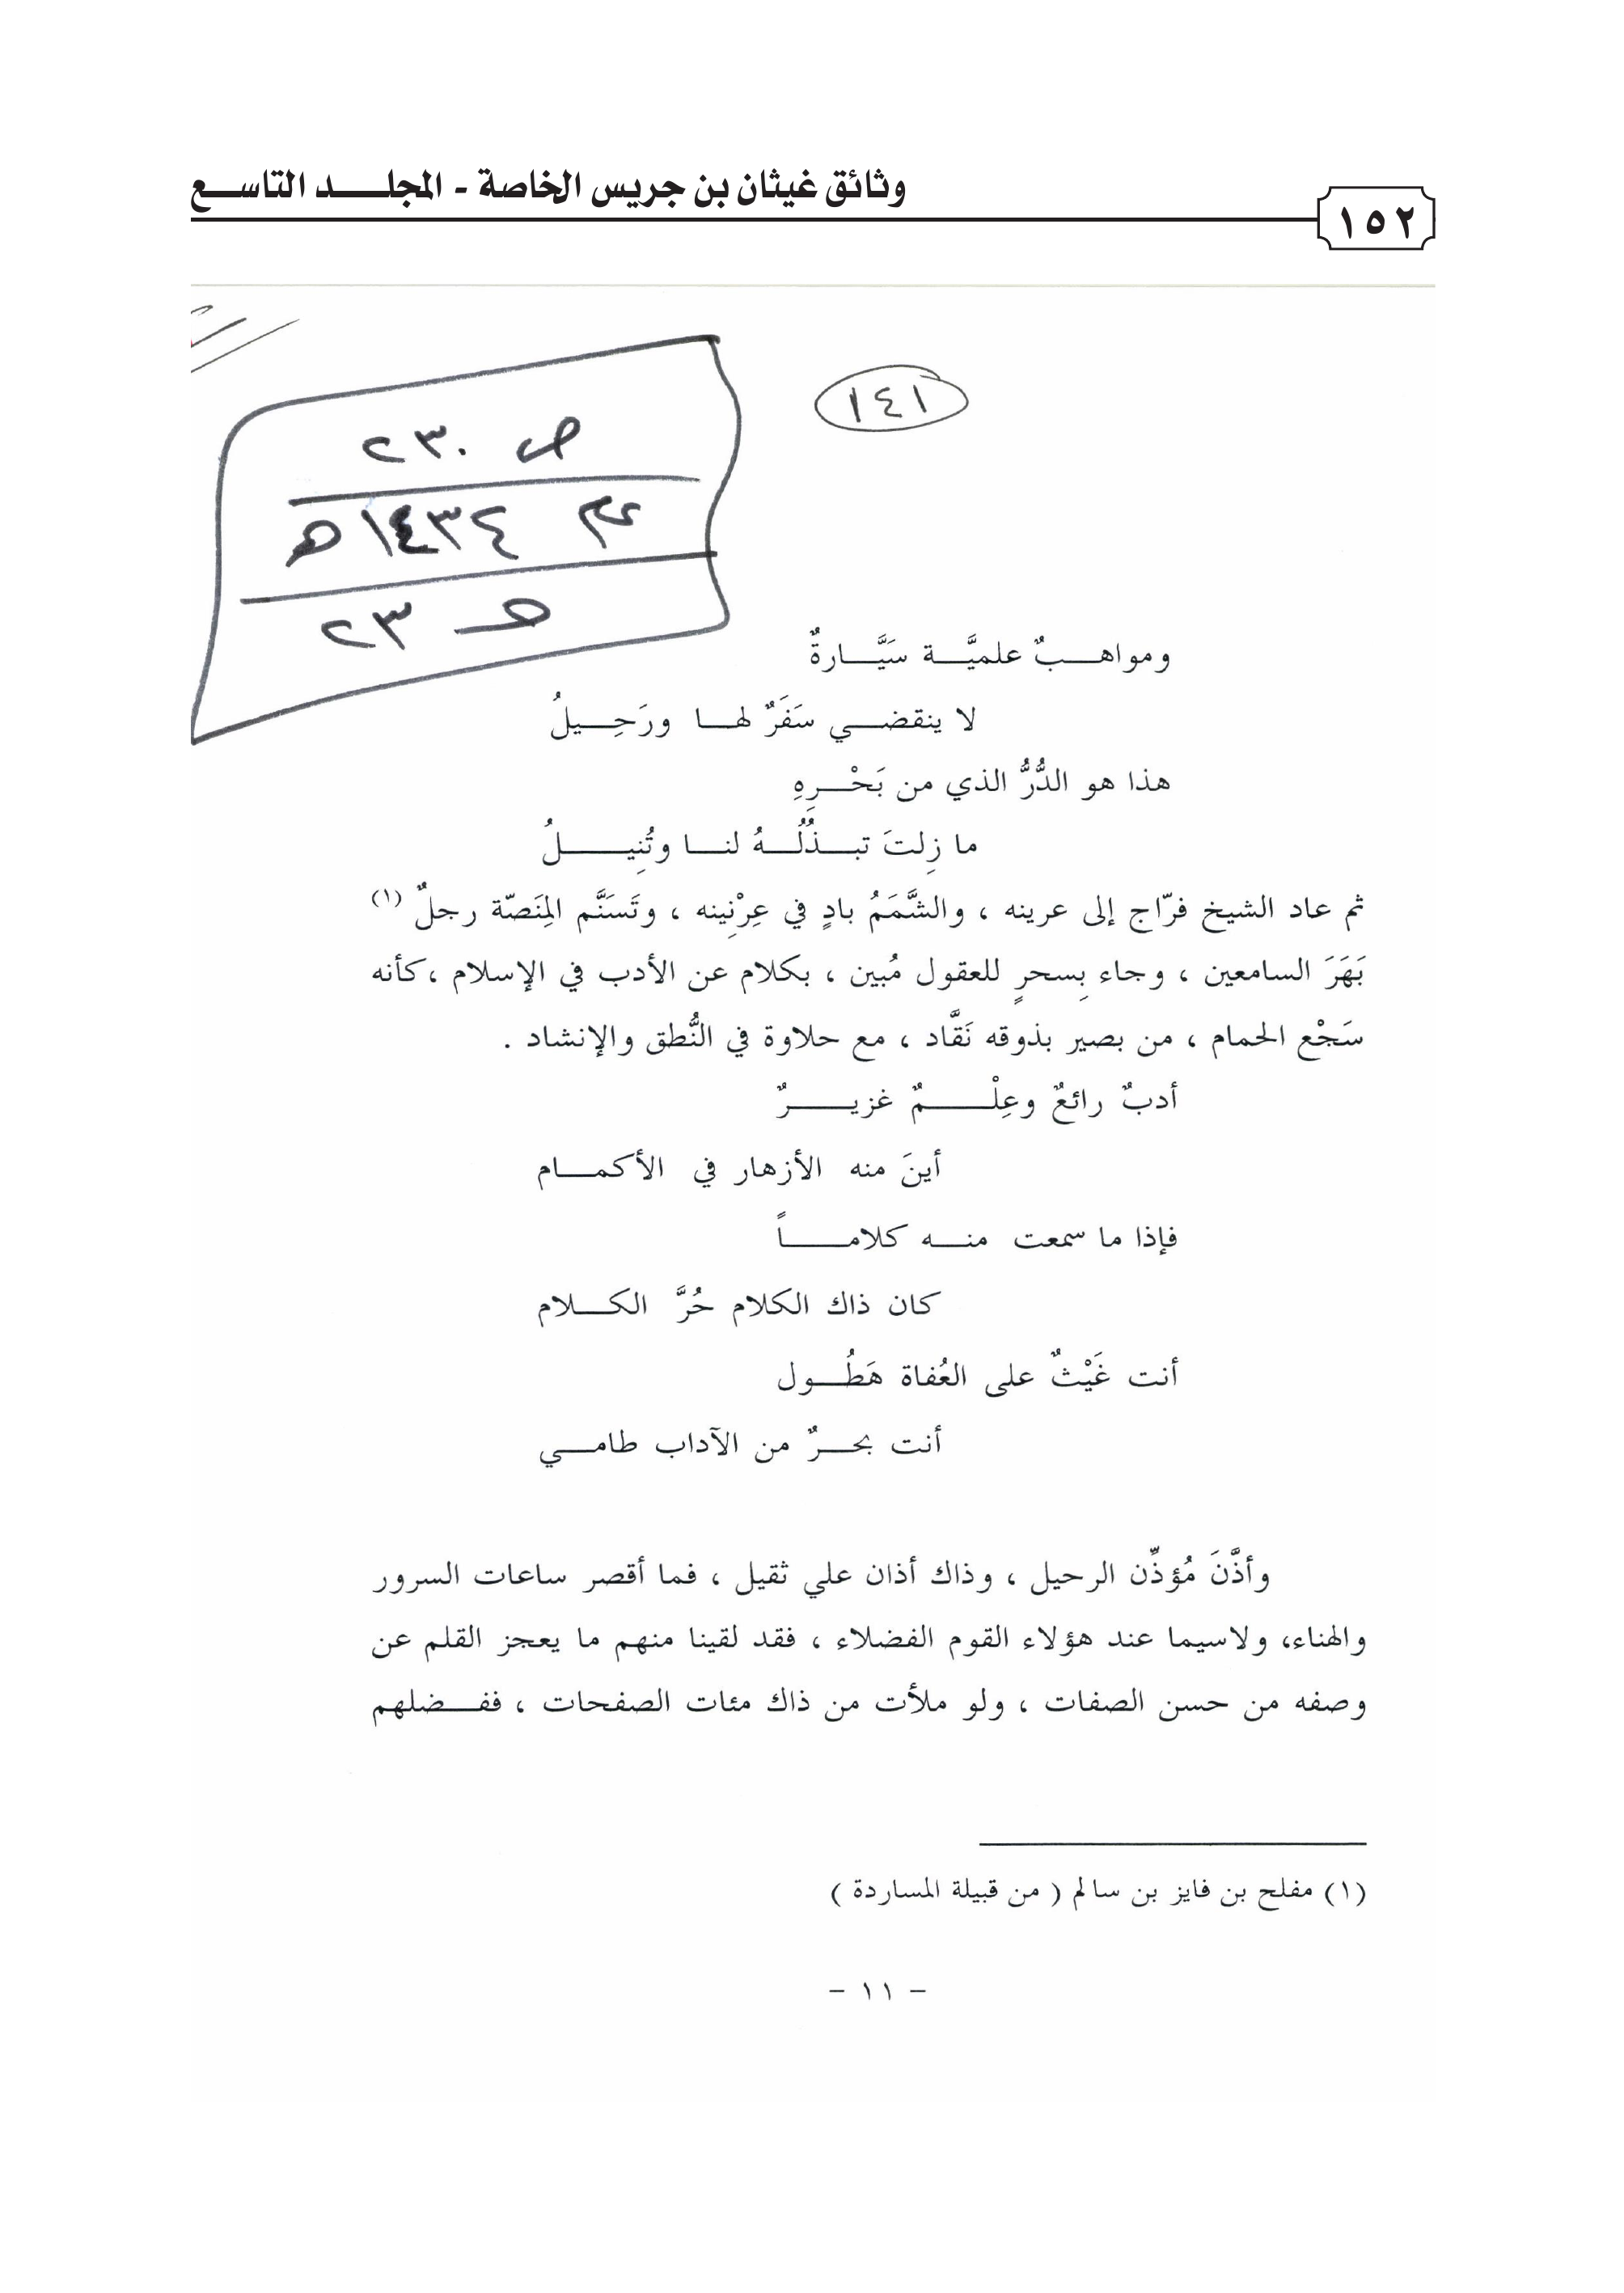 وثائق غيثان بن جريس الخاصة - المجلـــد التاســع
١٥٢
١٤١
ص ٢٣٠
١٤٣٤هـ
٢٣
ومواهــبٌ علميَّــة سَيَّــارةٌ
لا ينقضــي سَفَرٌ لهــا ورَحِــيلُ
هذا هو الدُّرُّ الذي من بَحْــرِهِ
ما زِلتَ تبــذُلُــهُ لنــا وتُنِيــــلُ
ثم عاد الشيخ فرّاج إلى عرينه ، والشَّمَمُ بادٍ في عِرْنِينه ، وتَسَنَّم المِنَصّة رجلٌ (١)
بَهَرَ السامعين ، وجاء بِسحرٍ للعقول مُبين ، بكلام عن الأدب في الإسلام ، كأنه
سَجْع الحمام ، من بصير بذوقه نَقَّاد ، مع حلاوة في النُّطق والإنشاد .
أدبٌ رائعٌ وعِلْــــمٌ غزيــــرٌ
أينَ منه الأزهار في الأكمــام
فإذا ما سمعت منــه كلامــــاً
كان ذاك الكلام حُرَّ الكــلام
أنت غَيْثٌ على العُفاة هَطُــول
أنت بحــرٌ من الآداب طامــي
وأذَّنَ مُؤذِّن الرحيل ، وذاك أذان علي ثقيل ، فما أقصر ساعات السرور
والهناء، ولاسيما عند هؤلاء القوم الفضلاء ، فقد لقينا منهم ما يعجز القلم عن
وصفه من حسن الصفات ، ولو ملأت من ذاك مئات الصفحات ، ففــضلهم
(١) مفلح بن فايز بن سالم ( من قبيلة المساردة )
- ١١ -